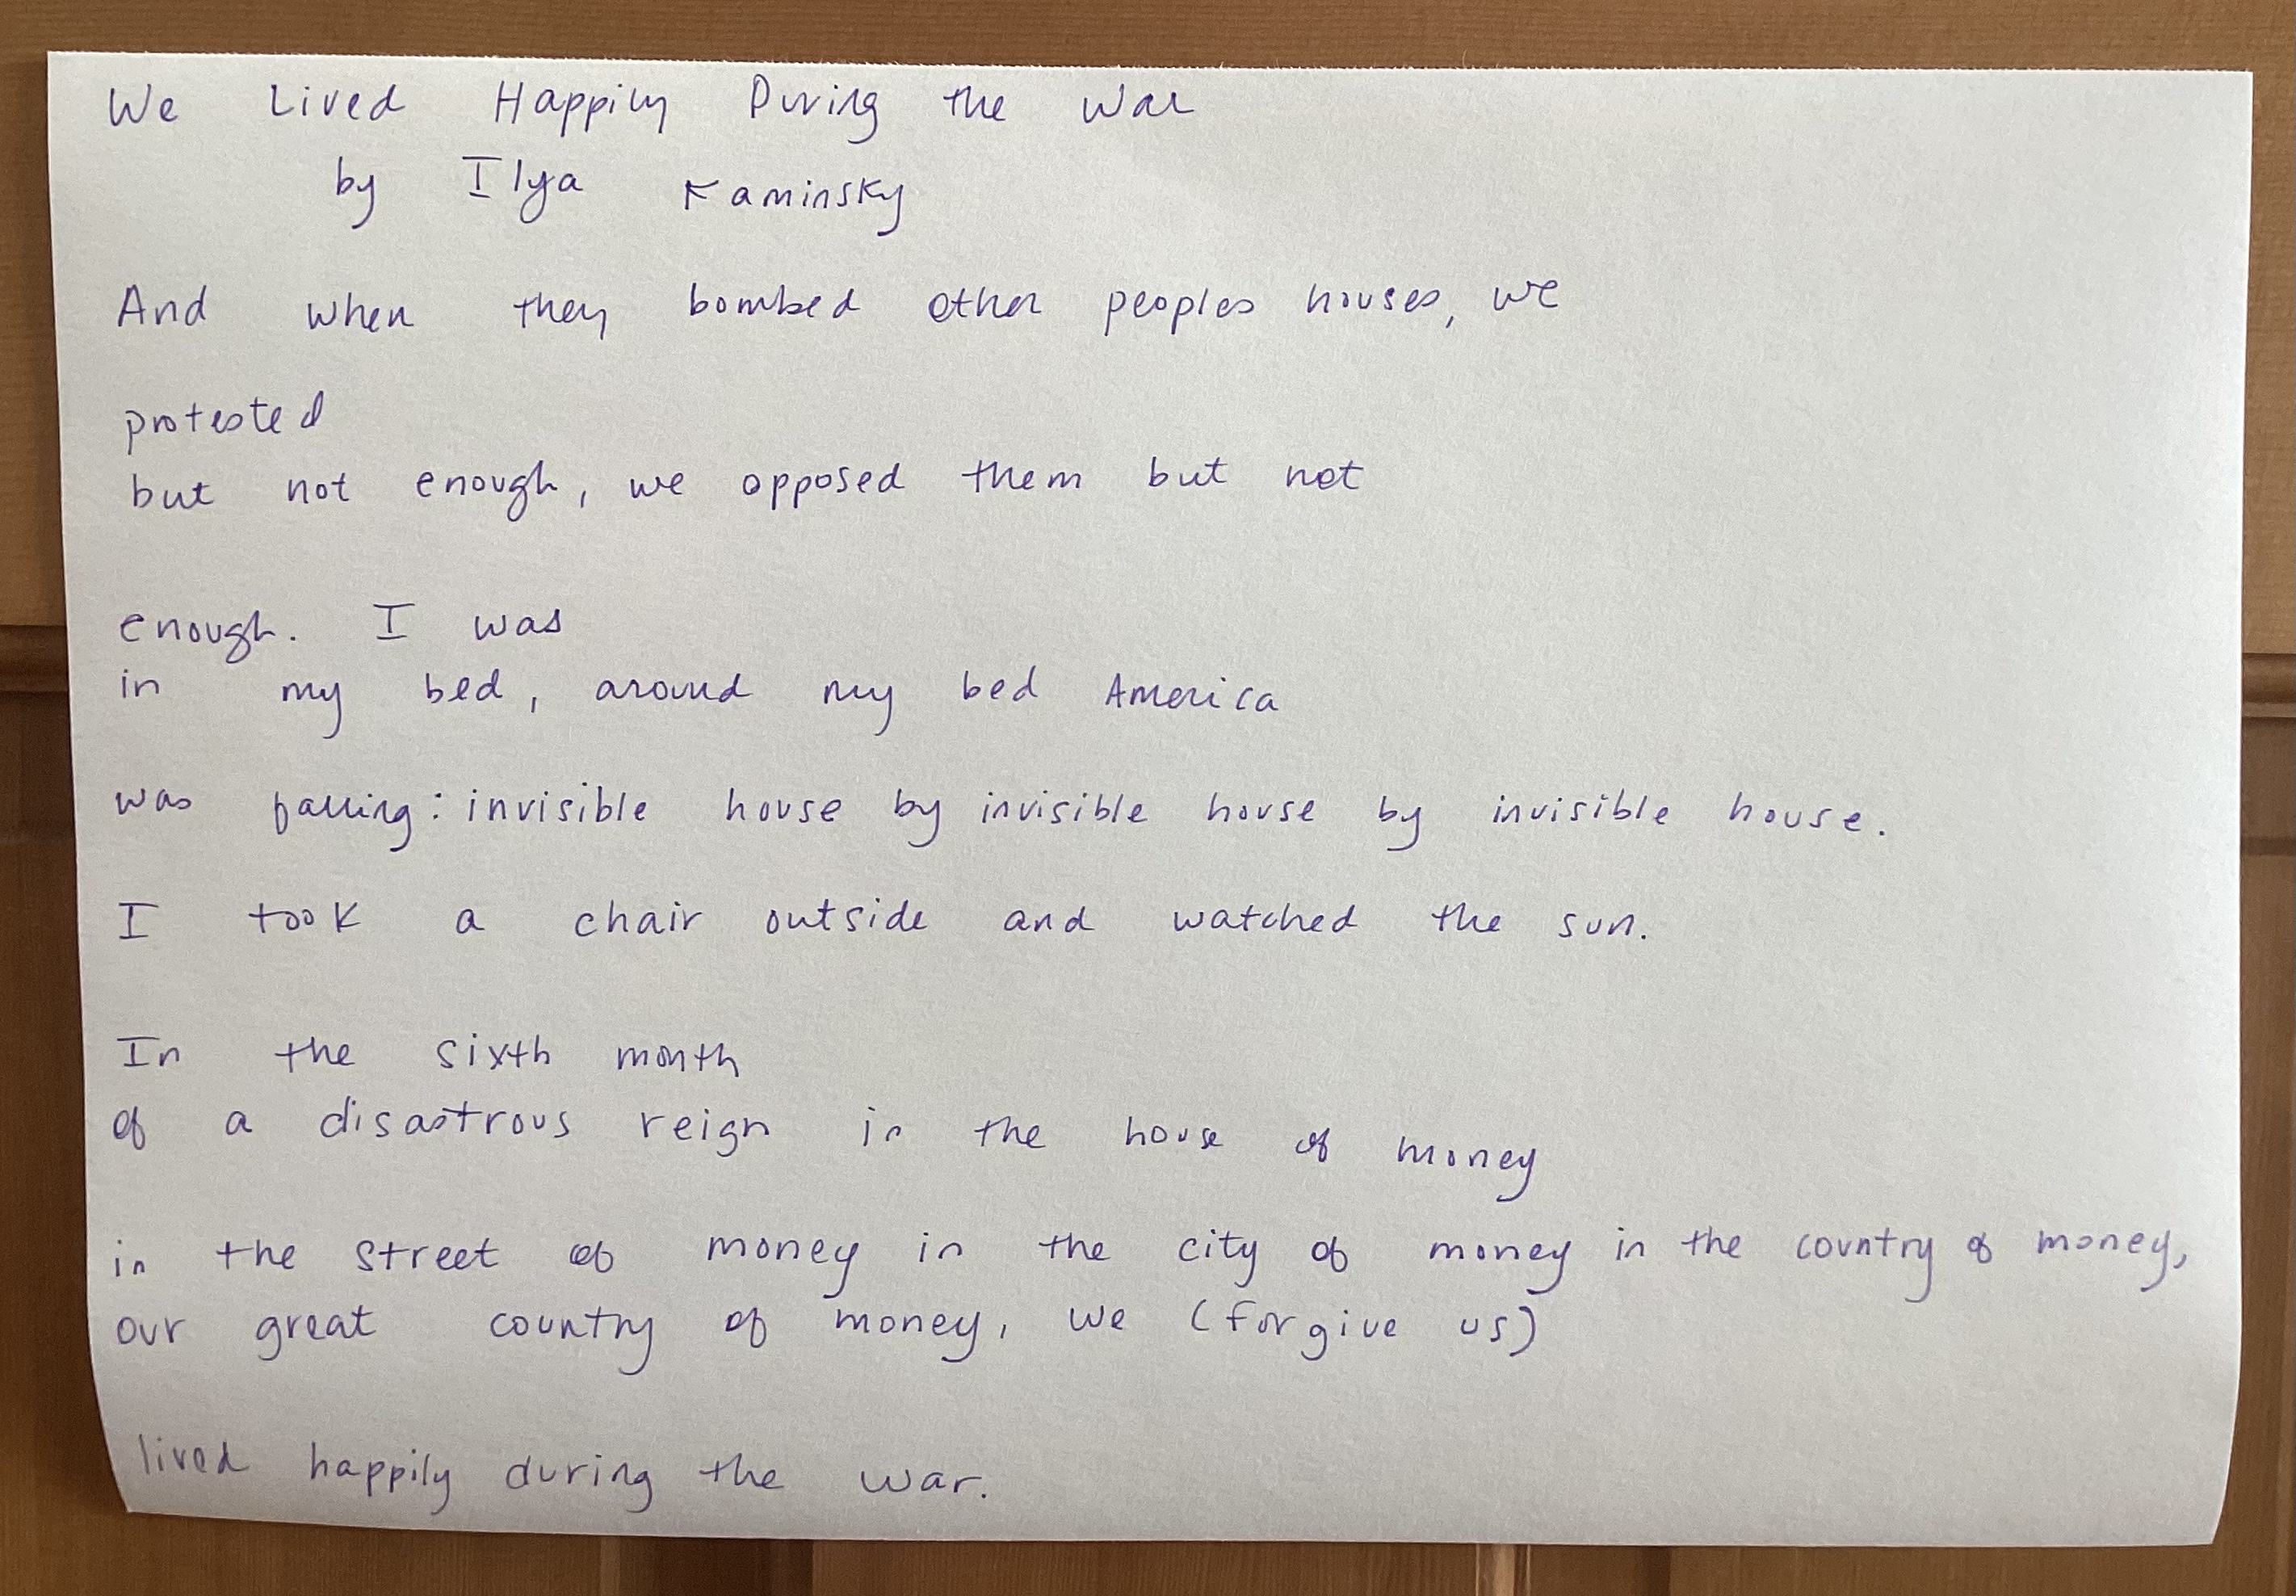 We Lived Happily During the War
by Ilya Kaminsky
And when they bombed other peoples houses, we
protested
but not enough, we opposed them but not
enough. I was
in my bed, around my bed America
was falling: invisible house by invisible house by invisible house.
I took a chair outside and watched the sun.
In the sixth month
of a disastrous reign in the house of money
in the street of money in the city of money in the country of money,
our great country of money, we (forgive us)
lived happily during the war.